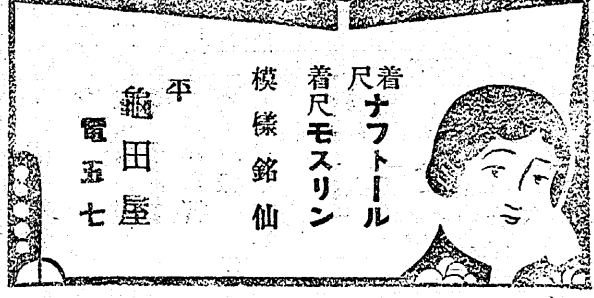 着尺ナフトール
着尺モスリン
模樣銘仙
平
龜田屋
電五七